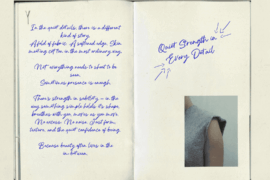 In the quiet details, there is a different
kind of story.
A fold of fabric. A softened edge. Skin
meeting cotton in the most ordinary way.
Not everything needs to shout to be
seen.
Sometimes presence is enough.
There's strength in subtlety - in the
way something simple holds its shape,
breathes with you, moves as you move.
No excess. No noise. Just form,
texture, and the quiet confidence of being.
Because beauty often lives in the
in between.
Quiet Strength in
Every Detail